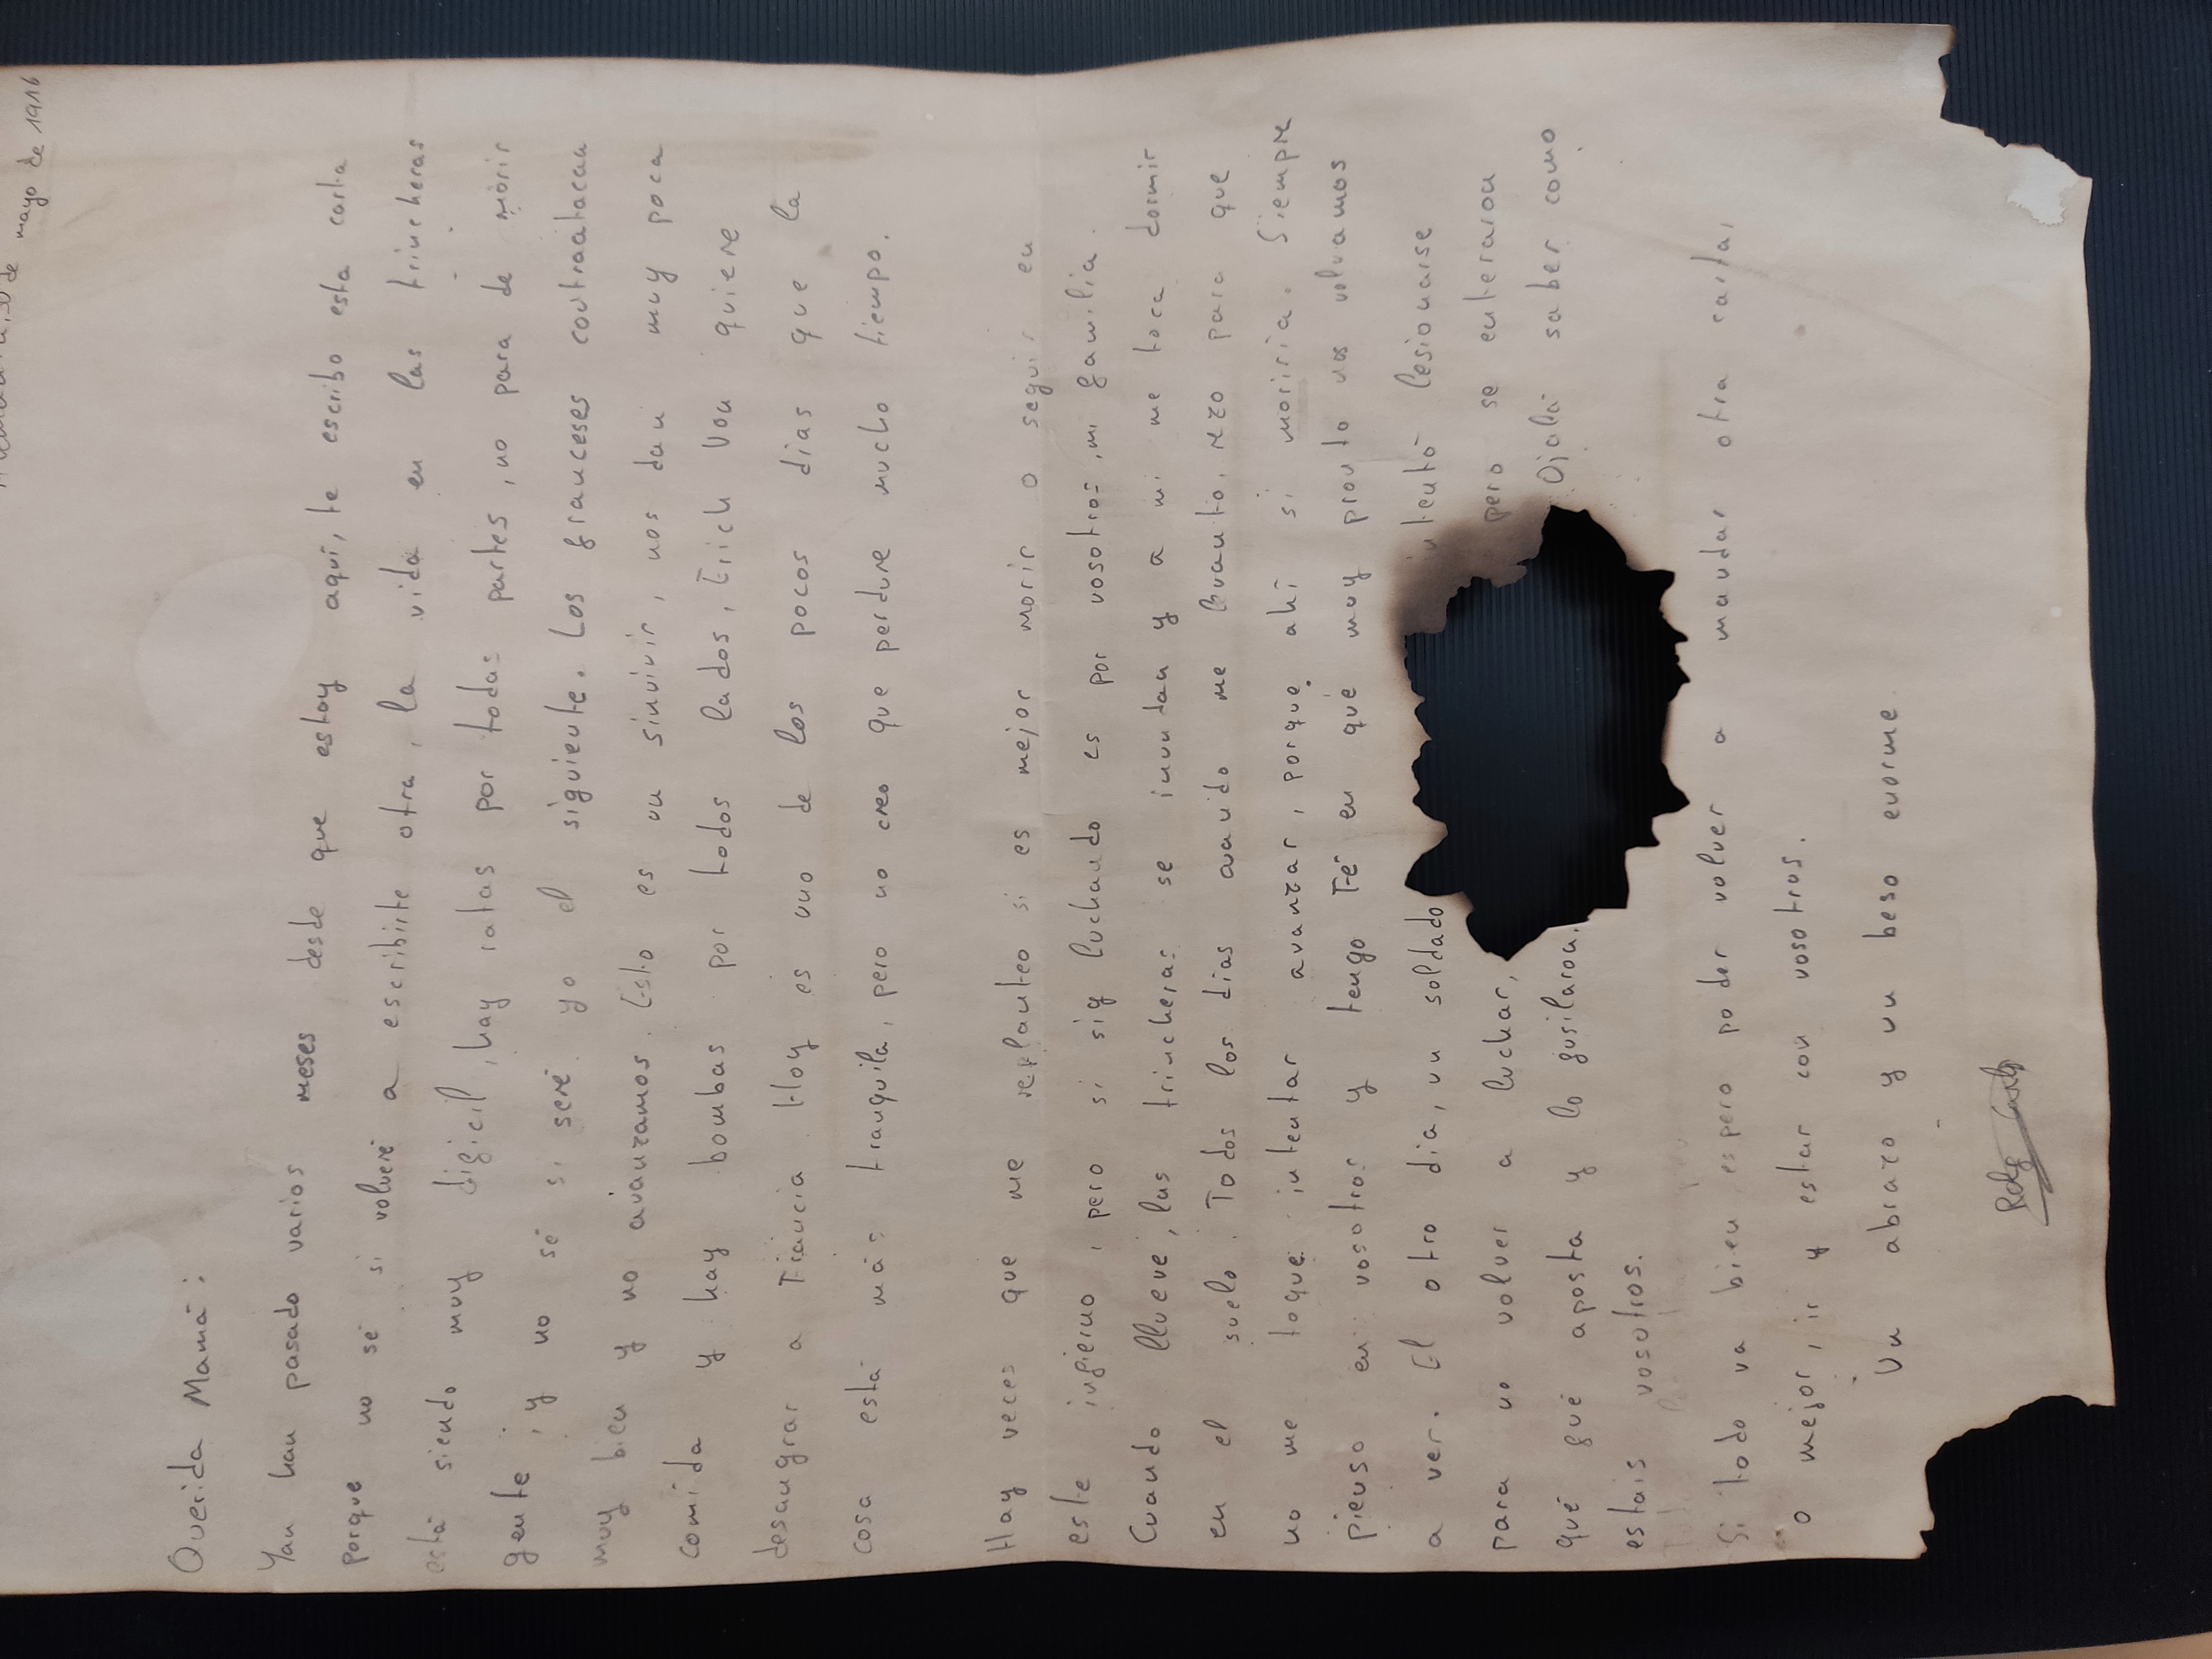 de mayo de 1916
Querida Mamá:
Yan han pasado varios meses desde que estoy aquí, te escribo esta carta
porque no sé si volveré a escribirte otra, la vida en las trincheras
está siendo muy difícil, hay ratas por todas partes, no para de morir
gente, y no sé si seré yo el siguiente. Los franceses contraatacan
muy bien y no avanzamos. Esto es un sinvivir, nos dan muy poca
comida y hay bombas por todos lados, Erich Von quiere
desangrar a Francia. Hoy es uno de los pocos días que la
cosa está más tranquila, pero no creo que perdure mucho tiempo.
Hay veces que me replanteo si es mejor morir o seguir en
este infierno, pero si sig luchando es por vosotros, mi familia.
Cuando llueve, las trincheras se inundan y a mi me toca dormir
en el suelo. Todos los días cuando me levanto, rezo para que
no me toque intentar avanzar, porque ahí si moriría. Siempre
pienso en vosotros y tengo Fé en qué muy pronto nos volvamos
a ver. El otro día, un soldado intentó lesionarse
para no volver a luchar, pero se enteraron
qué fué aposta y lo fusilaron. Ojalá saber como
estais vosotros.
Si todo va bien espero poder volver a mandar otra carta,
o mejor, ir y estar con vosotros.
Un abrazo y un beso enorme.